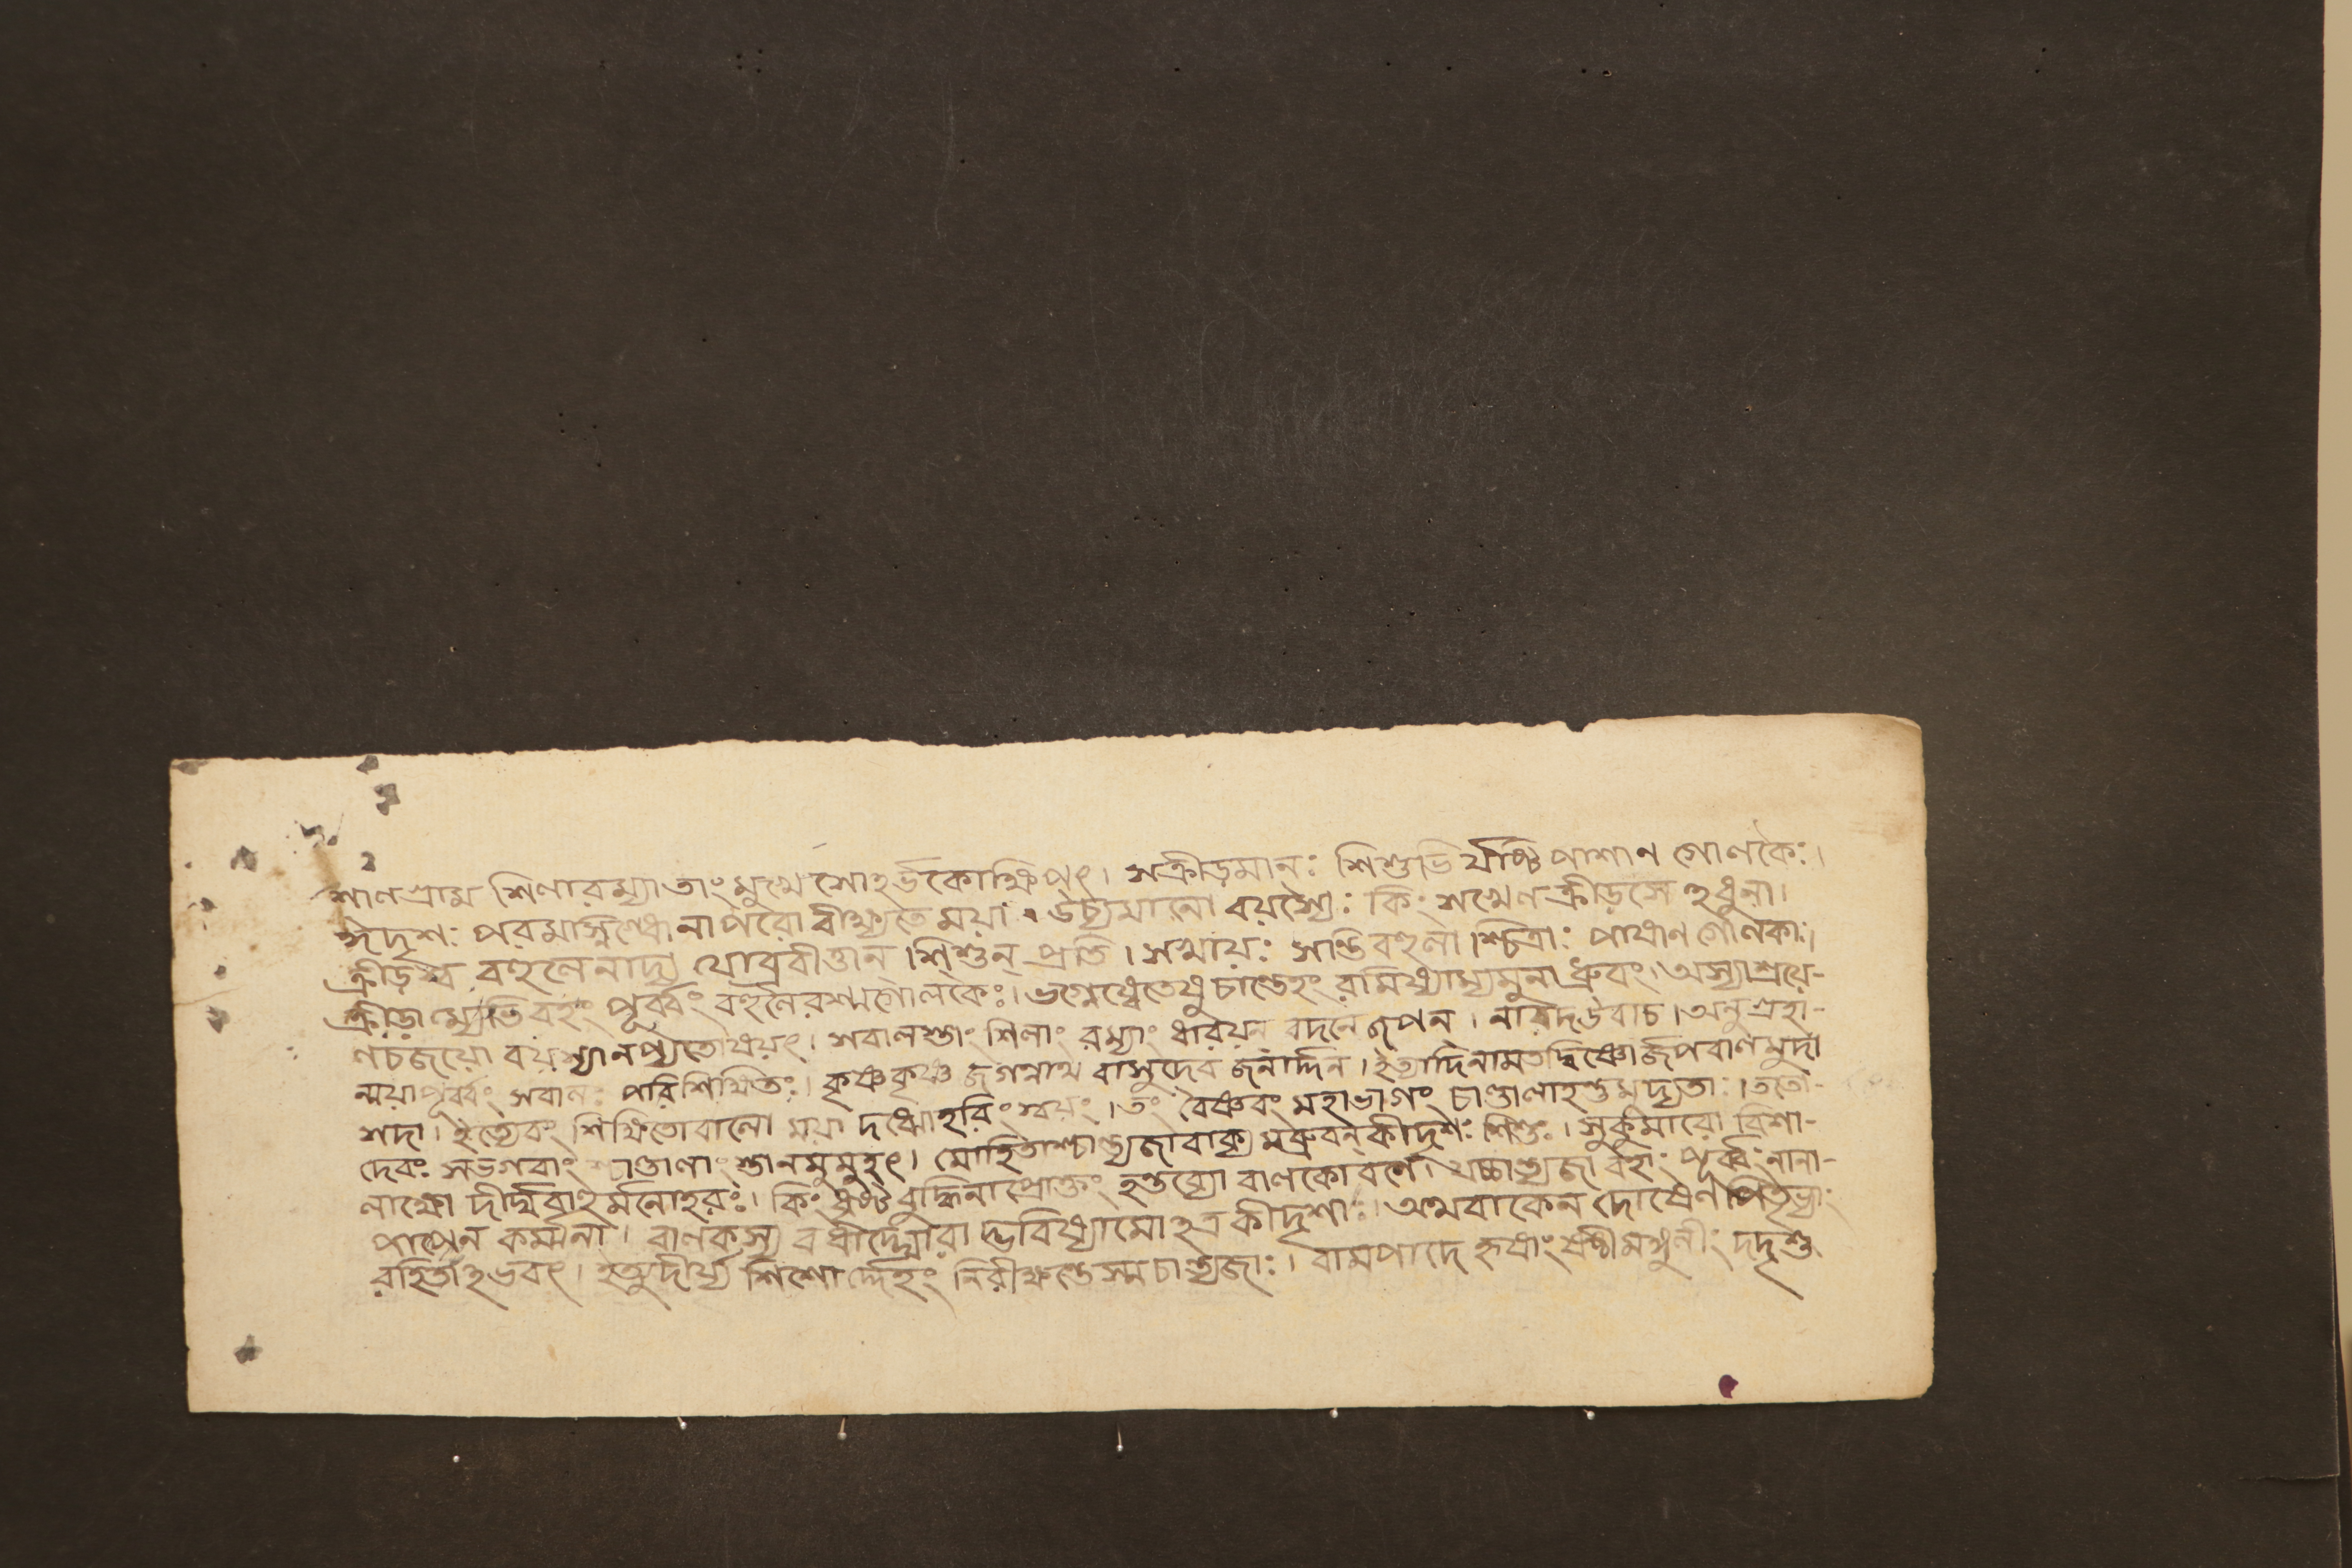 শালগ্রাম শিলারম্যাতাংমুখে সোহর্ভকোক্ষিপৎ। সক্রীড়মানঃ শিশুভি র্যষ্টি পাশান গোলকৈঃ।
ঈদৃশঃ পরমাস্নিগ্ধোনাপরো বীক্ষ্যতে ময়া। উচ্যমানো বয়স্যৈঃ কিং শঙ্খেণ ক্রীড়সে হধুনা।
ক্রীড়স্ব বহুলেনাদ্য যোব্রবীত্তান শিশুন্ প্রতি। সখায়ঃ সান্তিবহুলা শ্চিত্রাঃ পাষাণ গোলকাঃ।
ক্রীড়াম্যেভিবহং পূর্ব্বং বহুলৈরশ্মগোলকৈঃ। ভগ্নেষ্বেতেষুচাণ্ডেহং রামিষ্যাম্যমুনা ধ্রুবং। অস্যাশ্রয়ে-
ণচজয়ো বয়স্যানপ্যতোষয়ৎ। সবালস্তাং শিলাং রম্যাং ধারয়ন্ বদনে জপন্। নারদউবাচ। অনুগ্রহা-
ন্ময়াপূর্ব্বং সবালঃ পরিশিক্ষিতঃ। কৃষ্ণকৃষ্ণ জগন্নাথ বাসুদেব জনার্দ্দন। ইত্যাদিনামতদ্বিষ্ণোর্জপবালমুদা
সদা। ইত্যেবং শিক্ষিতোবালো ময়া দধ্মোহরিং স্বয়ং। তং বৈষ্ণবং মহাভাগং চাণ্ডালাহন্তুমদ্যতাঃ। ততো-
দেবঃ সভগবাং শ্চাণ্ডালাং স্তানমুমুহৎ। মোহিতাশ্চান্ত্যজাবাক্য মব্রুবন্ কীদৃশঃ শিশুঃ। সুকুমারো বিশা-
লাক্ষো দীর্ঘবাহুর্মনোহরঃ। কিং ধৃষ্ট বুদ্ধিনাপ্রোক্তং হন্তব্যো বালকো বলে। যচ্চান্ত্যজা বহাঃ পূর্ব্বং নানা-
পাপেন কর্ম্মনা। বালকস্য বধীর্দ্ঘোরা দ্ভবিষ্যামোহত্র কীদৃশাঃ। অথবাকেন দোষেণ পিতৃভ্যাং
রহিতোহভবৎ। ইত্যুদীর্য্য শিশোর্দ্দেহং নিরীক্ষন্তেস্ম চান্ত্যজাঃ। বামপাদে হ্যধাং ষষ্ঠীমঙ্গুলীং দদৃশু